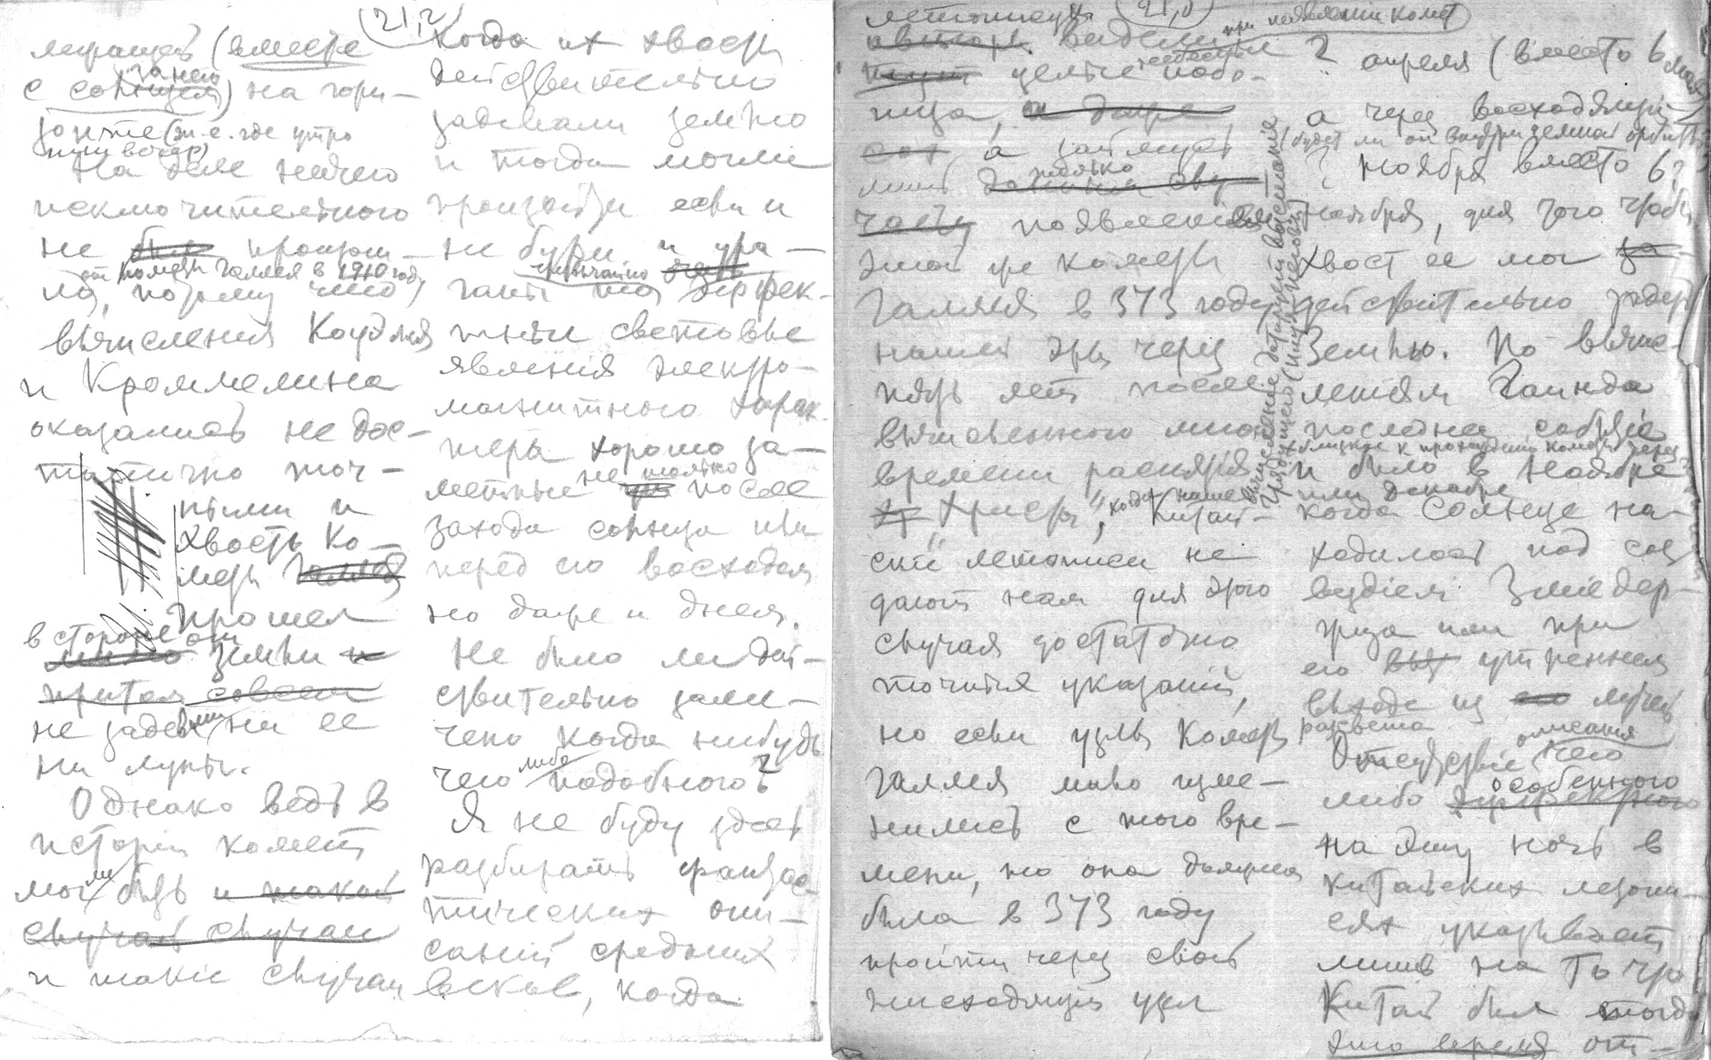 (21,2)
лежащей (вместе
за ней
с солнцем) на гори-
зонте (т.е. где утро
или вечер)
На деле ничего
исключительного
не было произош-
от кометы Галлея в 1910 году
ло, потому что
вычисления Коуэлля
и Кроммелина
оказались не дос-
таточно точ-
ными и
хвость ко-
меты Галлея
прошел
в стороне от
мимо Земли и
притом совсем
не задевши ни ее
ни луны.
Однако ведь в
истории комет
могли быть и такой
случай случаи
и такие случаи
когда их хвосты
действительно
задевали землю
и тогда могли
произойти если и
не бури и ура-
чрезвычайно
ганы то эффек-
тные световые
явления электро-
магнитного харак-
тера хорошо за-
не только
метные после
захода солнца или
перед его восходом
но даже и днем.
Не было ли дей-
ствительно заме-
чено когда нибудь
либо
чего подобного?
Я не буду здесь
разбирать фантас-
тических опи-
саний средних
веков, когда
летописцы (21,3) при появлении комет
видели
небесные
целые побо-
ища, и даже
а займусь
только
лишь
появления
этой же кометы
Галлея в 373 году
нашей эры через
пять лет после
вычисленного мною
времени распятия
„Христа“, когда
Китай-
ские летописи не
дают нам для этого
случая достаточно
точных указаний,
но если узлы кометы
Галлея мало изме-
нились с того вре-
мени, то она должна
была в 373 году
пройти через свой
нисходящий узел
? апреля (вместо 6 мая)
а через восходящий
(будет ли он внутри земной орбиты
? ноября вместо 6?
ноября, для того чтобы
хвост ее мог за-
действительно задеть
Землю. По вычис-
лениям Гайнда
последнее событие
близкое к прохождению кометы через
и было в ноябре
или декабре
когда Солнце на-
ходилось под соз-
вездием Змиедер-
жца или при
его утреннем
выходе из лучей
рассвета
описания
Отсутствие чего
особенного
либо эффектного
на эту ночь в
китайских летопи-
сях указывает
лишь на то что
Китай был тогда
это время от-